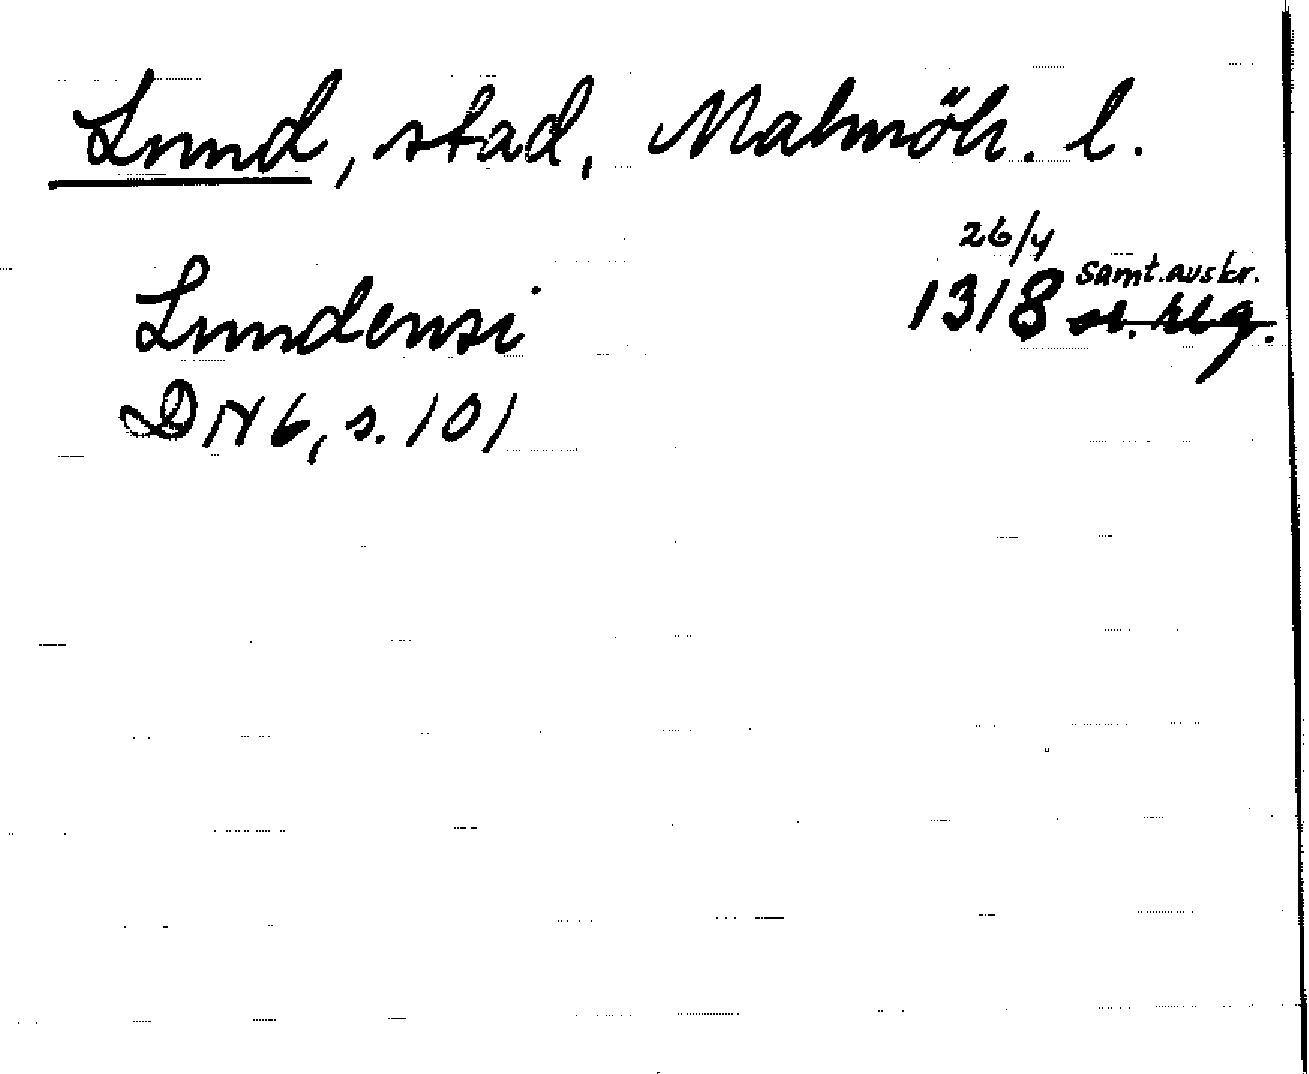 Lund, stad, Malmöh. l.
26/4
Lundensi 1318 samt. avskr.
DN 6, s. 101